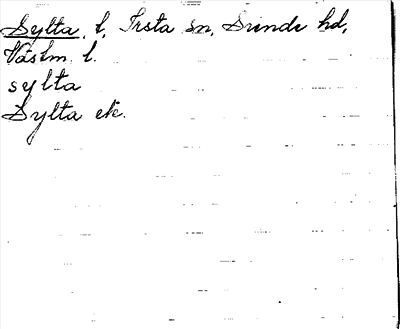 Sylta, t, Irsta sn, Siende hd,
Västm. l.
sylta
Sylta ek.